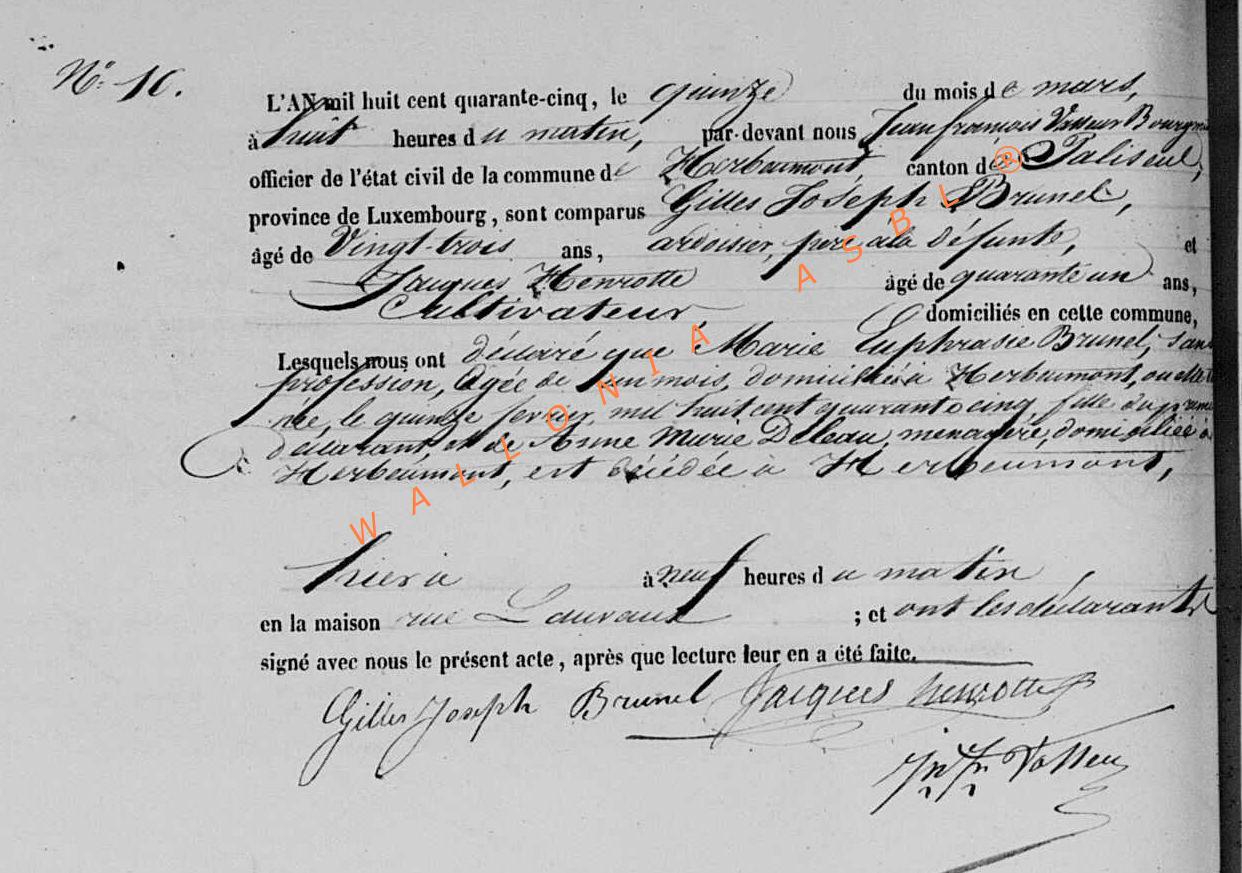 N° 10.
L'AN mil huit cent quarante-cinq, le quinze du mois de mars,
à huit heures du matin, par-devant nous Jean françois Vasseur Bourgm
officier de l'état civil de la commune de Herbeumont, canton de Paliseul,
province de Luxembourg, sont comparus Gilles Joseph Brunel,
âgé de Vingt-trois ans, ardoisier, père à la défunte, et
Jacques Henrotte âgé de quarante un ans,
Cultivateur, domiciliés en cette commune,
Lesquels nous ont déclaré que Marie Euphrasie Brunel, sans
profession, âgée de un mois, domiciliée à Herbeumont, ou elle
née, le quinze fevrier, mil huit cent quarante cinq, fille du
déclarant, et de Anne Marie Deleau, menagère, domiciliée à
Herbeumont, est décédée à Herbeumont,
hier à à neuf heures du matin,
en la maison rue ; et ont les déclarants
signé avec nous le présent acte, après que lecture leur en a été faite.
Gilles Joseph Brunel Jacques henrotte
Jn Fr Vasseur
WALLONIA ASBL ®